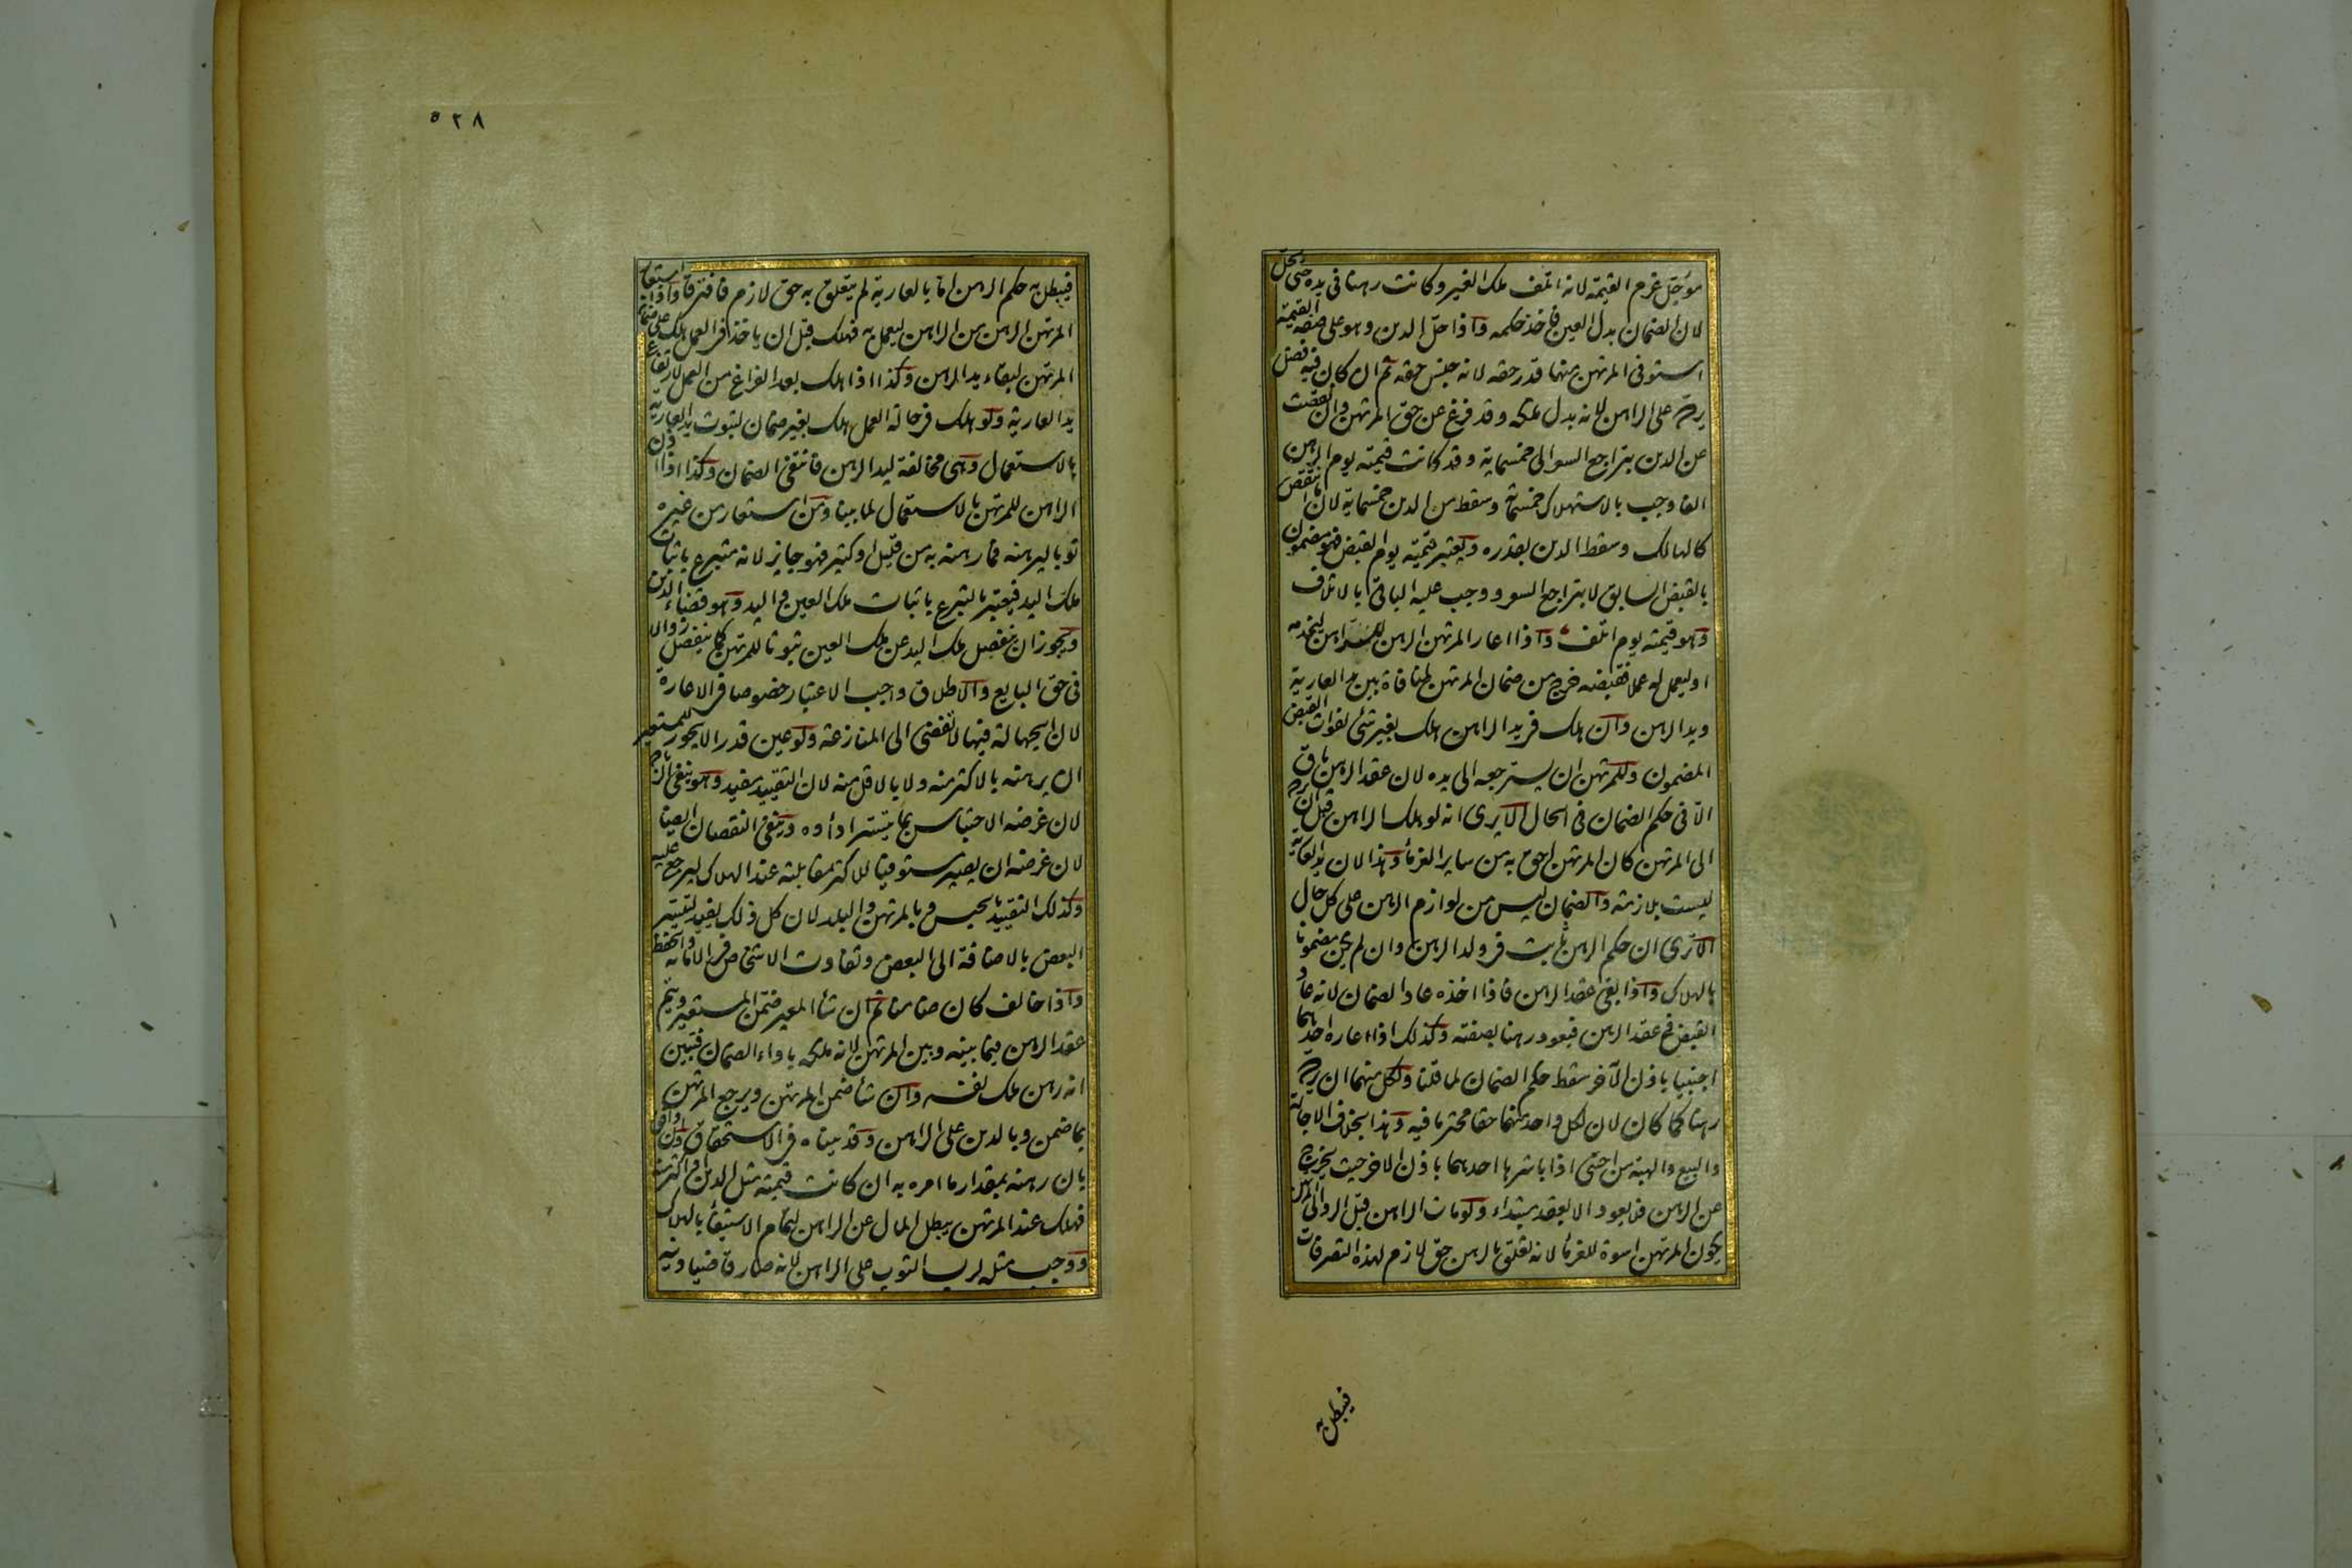 مؤجل غرم القيمة لانه اتلف ملك الغير وكانت رهنا فى يده حتى يحل
لان الضمان بدل العين فاخذ حكمه واذا حل الدين وهو على صفة القيمة
استوفى المرتهن منها قدر حقه لانه جنس حقه ثم ان كان فيه فضل
يرده على الراهن لانه بدل ملكه وقد فرغ عن حق المرتهن وان نقصت
عن الدين بتراجع السعر الى خمسماية وقد كانت قيمته يوم الرهن
الفا وجب بالاستهلاك خمسماية وسقط من الدين خمسماية لان ما انتقص
كالهالك وسقط الدين بقدره ويعتبر قيمته يوم القبض فهو مضمون
بالقبض السابق لا بتراجع السعر ووجب عليه الباقى بالاتلاف
وهو قيمته يوم اتلف واذا اعار المرتهن الرهن للراهن ليخدمه
او ليعمل له عملا فقبضه خرج من ضمان المرتهن لمنافاة بين يد العارية
ويد الرهن وان هلك فى يد الراهن هلك بغير شئ لفوات القبض
المضمون وللمرتهن ان يسترجعه الى يده لان عقد الرهن باق
الا فى حكم الضمان فى الحال الا يرى انه لو هلك الراهن قبل ان يرده
الى المرتهن كان المرتهن احق به من ساير الغرماء وهذا لان يد العارية
ليست بلازمة والضمان ليس من لوازم الرهن على كل حال
الا ترى ان حكم الرهن ثابت فى ولد الرهن وان لم يكن مضمونا
بالهلاك واذا بقى عقد الرهن فاذا اخذه عاد الضمان لانه عاد
القبض فى عقد الرهن فيعود رهنا بصفته وكذلك اذا اعاره احدهما
اجنبيا باذن الآخر سقط حكم الضمان لما قلنا ولكل منهما ان يرده
رهنا كما كان لان لكل واحد منهما حقا محترما فيه وهذا بخلاف الاجارة
والبيع والهبة من اجنبى اذا باشرها احدهما باذن الاخر حيث يخرج
عن الرهن فلا يعود الا بعقد مبتداء ولو مات الراهن قبل الرد الى المرتهن
يكون المرتهن اسوة للغرماء لانه تعلق بالرهن حق لازم لهذه التصرفات
فيبطل به
٥٢٨
فيبطل به حكم الرهن اما بالعارية لم يتعلق به حق لازم فافترقا واذا استعار
المرتهن الرهن من الراهن ليعمل به فهلك قبل ان ياخذ فى العمل هلك على ضمان
المرتهن لبقاء يد الرهن وكذا اذا هلك بعد الفراغ من العمل لارتفاع
يد العارية ولو هلك فى حالة العمل هلك بغير ضمان لثبوت يد العارية
بالاستعمال وهى مخالفة ليد الرهن فانتفى الضمان وكذا اذا اذن
الراهن للمرتهن بالاستعمال لما بينا ومن استعار من غيره
ثوبا ليرهنه فما رهنه به من قليل او كثير فهو جايز لانه متبرع باثبات
ملك اليد فيعتبر بالتبرع باثبات ملك العين واليد وهو قضاء الدين
ويجوز ان ينفصل ملك اليد عن ملك العين ثبوتا للمرتهن كما ينفصل زوالا
فى حق البايع والاطلاق واجب الاعتبار خصوصا فى الاعارة
لان الجهالة فيها لا تفضى الى المنازعة ولو عين قدرا لا يجوز للمستعير
ان يرهنه بالاكثر منه ولا بالاقل منه لان التقييد مفيد وهو ينفى الزيادة
لان غرضه الاحتباس بما تيسر اداؤه وينفى النقصان ايضا
لان غرضه ان يصير مستوفيا للاكثر بمقابلته عند الهلاك ليرجع عليه
وكذلك التقييد بالجنس وبالمرتهن والبلد لان كل ذلك يفيد لتيسر
البعض بالاضافة الى البعض وتفاوت الاشخاص فى الامانة والحفظ
واذا خالف كان ضامنا ثم ان شاء المعير ضمن المستعير ويتم
عقد الرهن فيما بينه وبين المرتهن لانه ملكه باداء الضمان فتبين
انه رهن ملك نفسه وان شاء ضمن المرتهن ويرجع المرتهن
بما ضمن وبالدين على الراهن وقد بيناه فى الاستحقاق وان وافق
بان رهنه بمقدار ما امره به ان كانت قيمته مثل الدين او اكثر منه
فهلك عند المرتهن يبطل المال عن الراهن لتمام الاستيفاء بالهلاك
ووجب مثله لرب الثوب على الراهن لانه صار قاضيا دينه